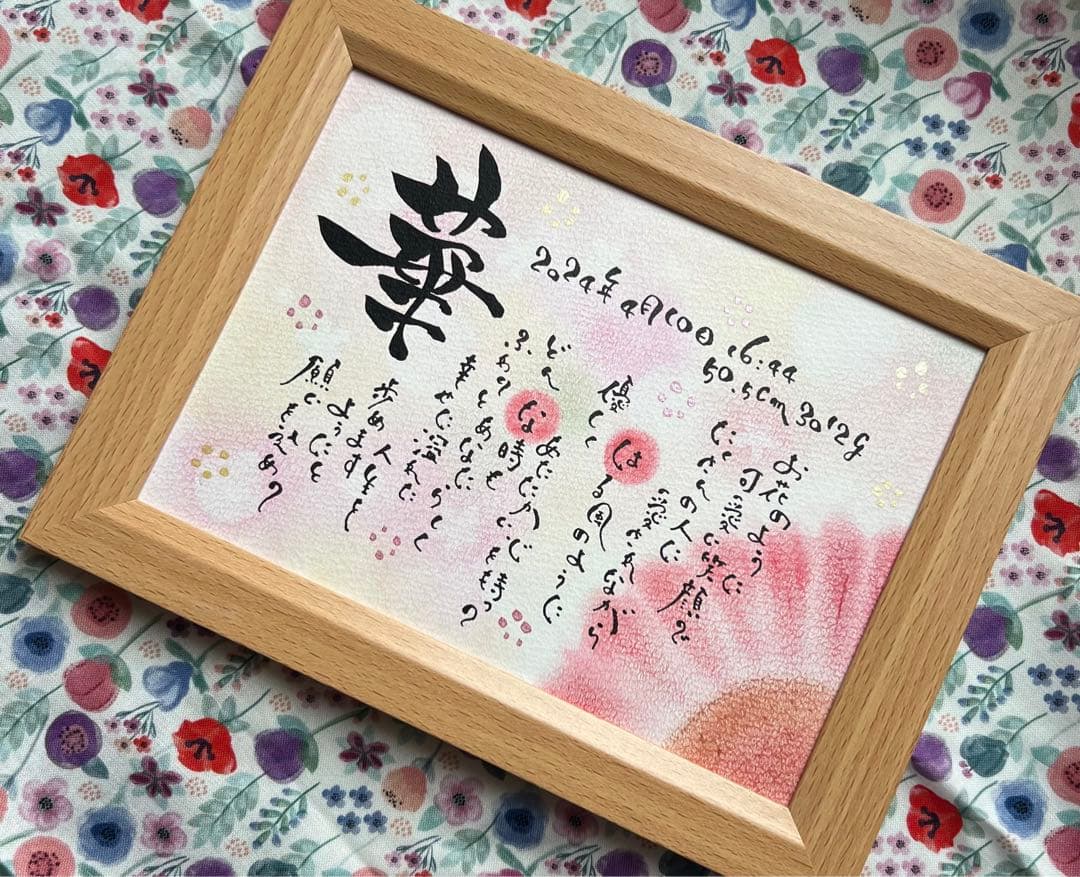 華
2024年4月10日 16:44
50.5cm 3012g
お花のように
可愛い笑顔で
たくさんの人に
愛されながら
優しく
はる風のように
どんな時も
あたたかい心を持って
あなたらしく
幸せに溢れた
人生を
歩め
ますようにと
願いをこめて